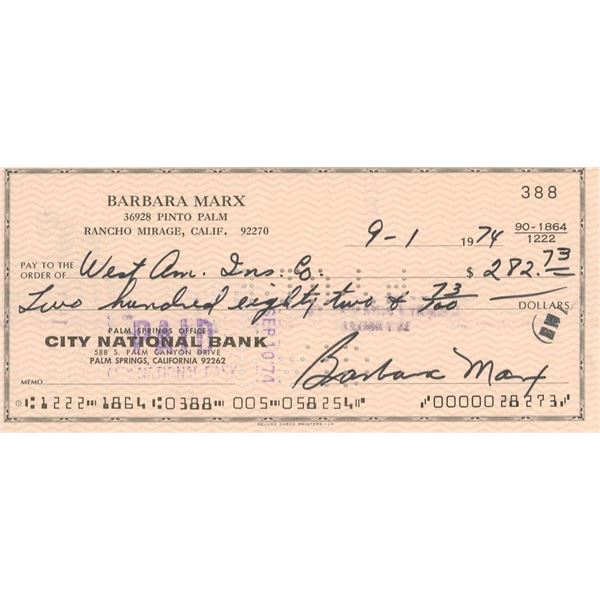 BARBARA MARX
36928 PINTO PALM
RANCHO MIRAGE, CALIF. 92270
388
9-1 1974
90-1864
1222
PAY TO THE
ORDER OF West Am. Ins. Co. $ 282.73
Two hundred eighty two & 73/100 DOLLARS
PALM SPRINGS OFFICE
PAID
CITY NATIONAL BANK
588 S. PALM CANYON DRIVE
PALM SPRINGS, CALIFORNIA 92262
CITY NATIONAL BANK
SEP 10 74
MEMO Barbara Marx
⑆1222⑉1864⑆0388 005⑉058254⑈ ⑈0000028273⑈
DELUXE CHECK PRINTERS